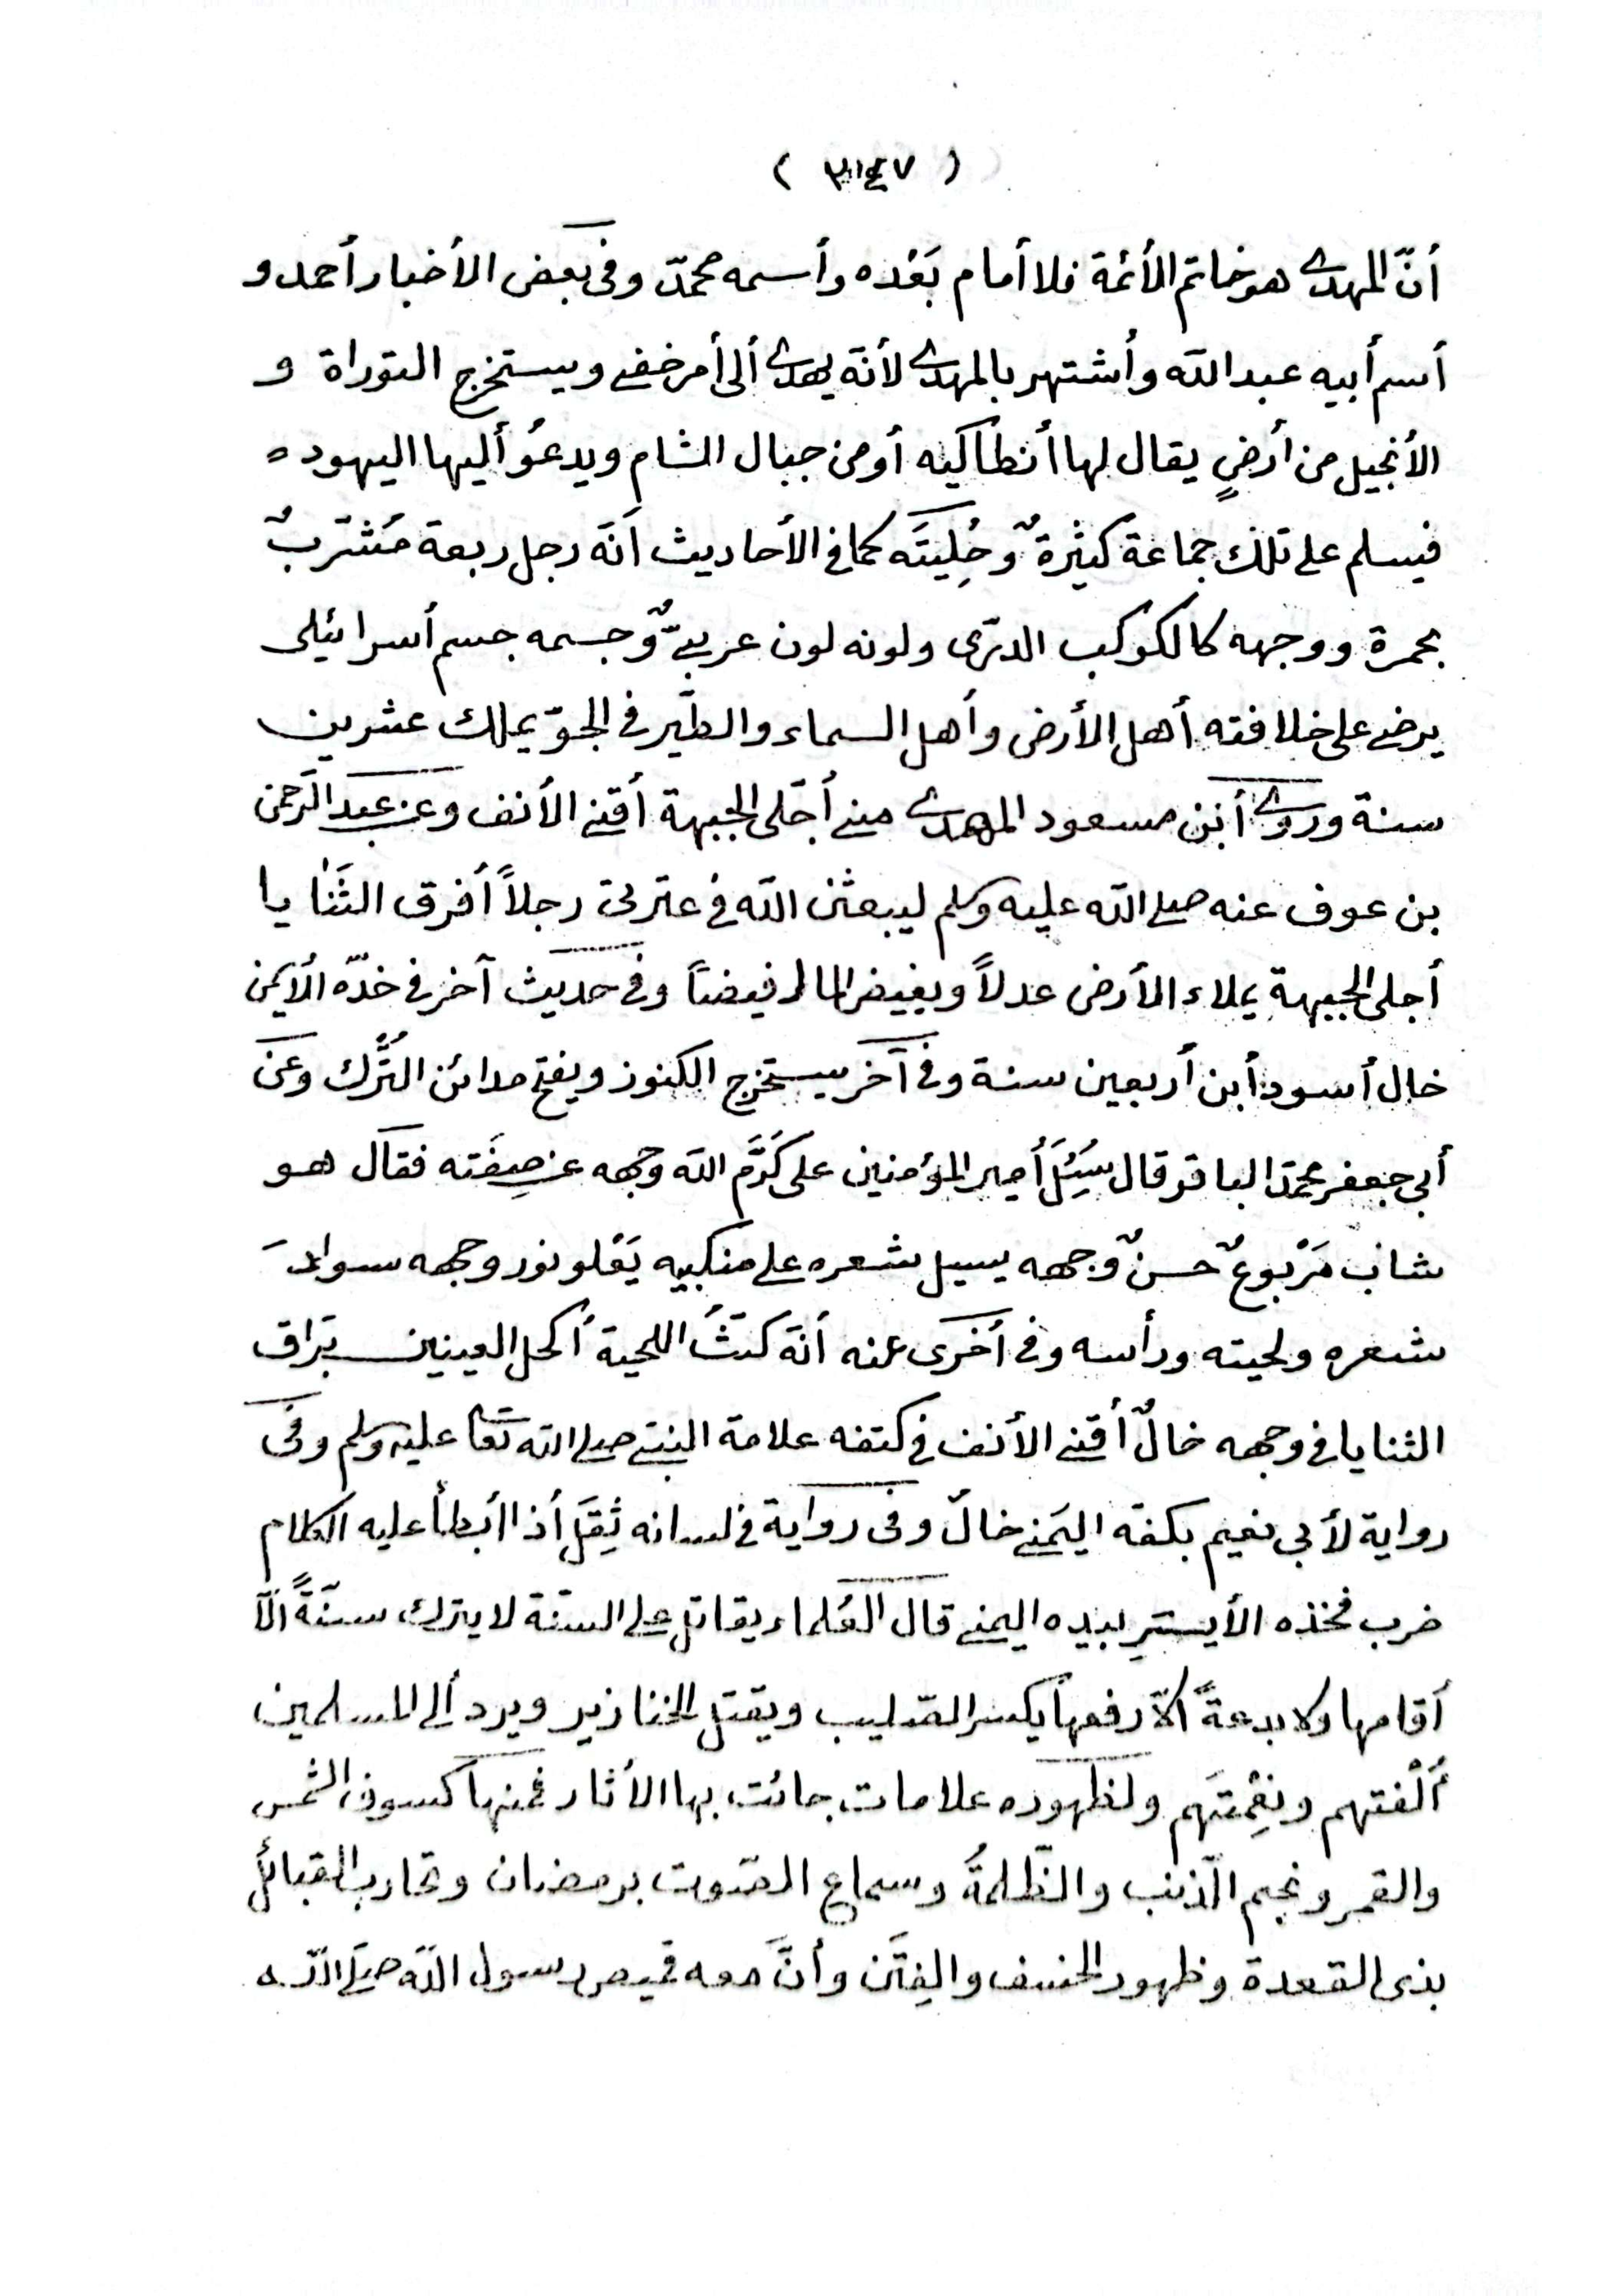 ( ٣٤٧ )
أنّ المهدى هو خاتم الأئمة فلا أمام بَعْده وأسمه محمدّ وفى بعض الأخبار أحمد و
أسم أبيه عبد الله وأشتهر بالمهدى لأنه يهدى ألى أمر خفى ويستخرج التوراة و
الأنجيل من أرضٍ يقال لها أنطاكيه أو من جبال الشام ويدعُو أليها اليهود ه
فيسلم على تلك جماعة كثيرةٌ وحِليَتَه كما فى الأحاديث أنه رجل ربعة مُشْرَبٌ
بحمرة ووجهه كالكوكب الدرّى ولونه لون عربىٌّ وجسمه جسم أسرائيلى
يرضى على خلافته أهل الأرض وأهل السماء والطَّير فى الجوّ يملك عشرين
سنة وروى أبن مسعود المهدى منى أجَلى الجبهة أقنى الأنف وعن عبد الرَحمن
بن عوف عنه صلى الله عليه وسلم ليبعثن الله فى عترتى رجلاً أفرق الثَنَايا
أجلى الجبهة يملاء الأرض عدلاً ويفيض المال فيضاً وفى حديث آخر فى خدّه الأيمن
خال أسود أبن أربعين سنة وفى آخر يستخرج الكنوز ويفتح مدائن التُّرك وعَن
أبى جعفر محمّد الباقر قال سُئِلَ أمير المؤمنين على كَرَّم الله وجهه عن صِفَته فقال هو
شاب مَرْبوعٌ حسنٌ وجهه يسيل شعره على منكبيه يَعْلو نور وجهه سوادَ
شعره ولحيته ورأسه وفى أخرى عنه أنّه كثُّ اللحية أكحل العينين برّاق
الثنايا فى وجهه خالٌ أقنى الأنف فى كتفه علامة النبى صلى الله تعا عليه وسلم وفى
رواية لأبى نعيم بكفه اليَمنى خالٌ وفى رواية فى لسانه ثِقَل أذا أبطأ عليه الكلام
ضرب فخذه الأيسَرِ بيده اليمنى قال العُلماء يقاتل على السنّة لا يترك سنّةً الّا
أقامها ولا بدعةً الّا رفعها يكسر الصّليب ويقتل الخنازير ويرد ألى المسلمين
أُلْفتهم ونِعْمتَهم ولظهوره علامات جائت بها الأثار فمنها كسوف الشمس
والقمر ونجم الذّنب والظّلمةُ وسماع الصّوت برمضان وتحارب القبائل
بذى القعدة وظهور الخسف والفِتَن وأنَّ معه قميص رسول الله صلَى الله